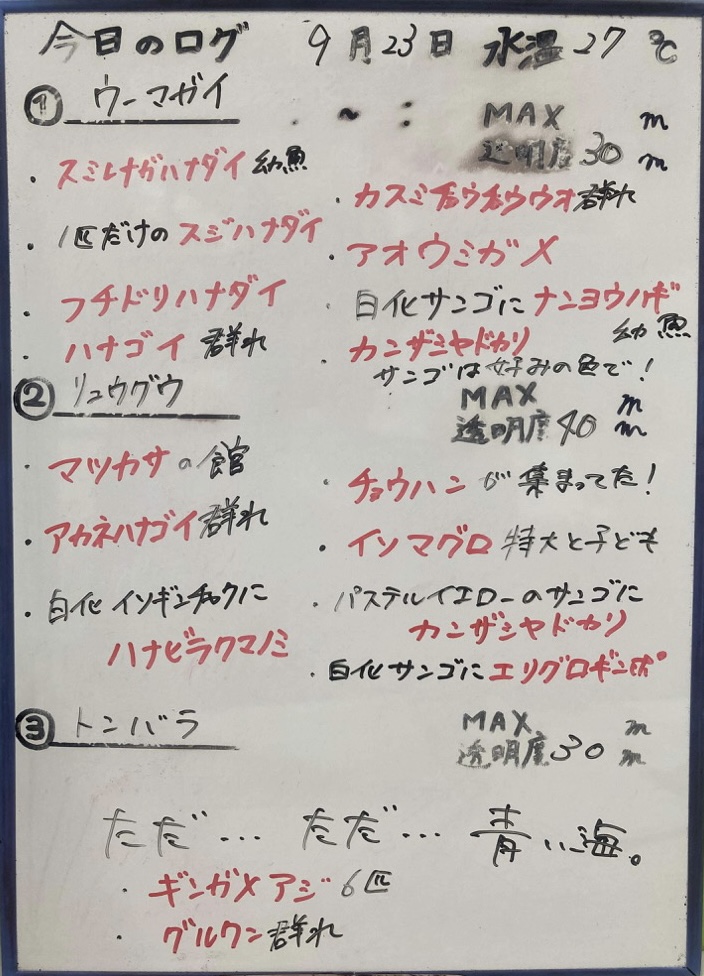 今日のログ 9月23日 水温27℃
① ウーマガイ
・ ~ : MAX m
透明度30m
・スミレナガハナダイ 幼魚
・1匹だけの スジハナダイ
・フチドリハナダイ
・ハナゴイ 群れ
・カスミチョウチョウウオ群れ
・アオウミガメ
・白化サンゴに ナンヨウハギ
幼魚
・カンザシヤドカリ
サンゴは好みの色で!
② リュウグウ
MAX m
透明度40m
・マツカサの館
・アカネハナゴイ群れ
・白化イソギンチャクに
ハナビラクマノミ
・チョウハンが集まってた!
・イソマグロ 特大と子ども
・パステルイエローのサンゴに
カンザシヤドカリ
・白化サンゴにエリグロギンポ
③ トンバラ
MAX m
透明度30m
ただ… ただ… 青い海。
・ギンガメアジ 6匹
・グルクン群れ